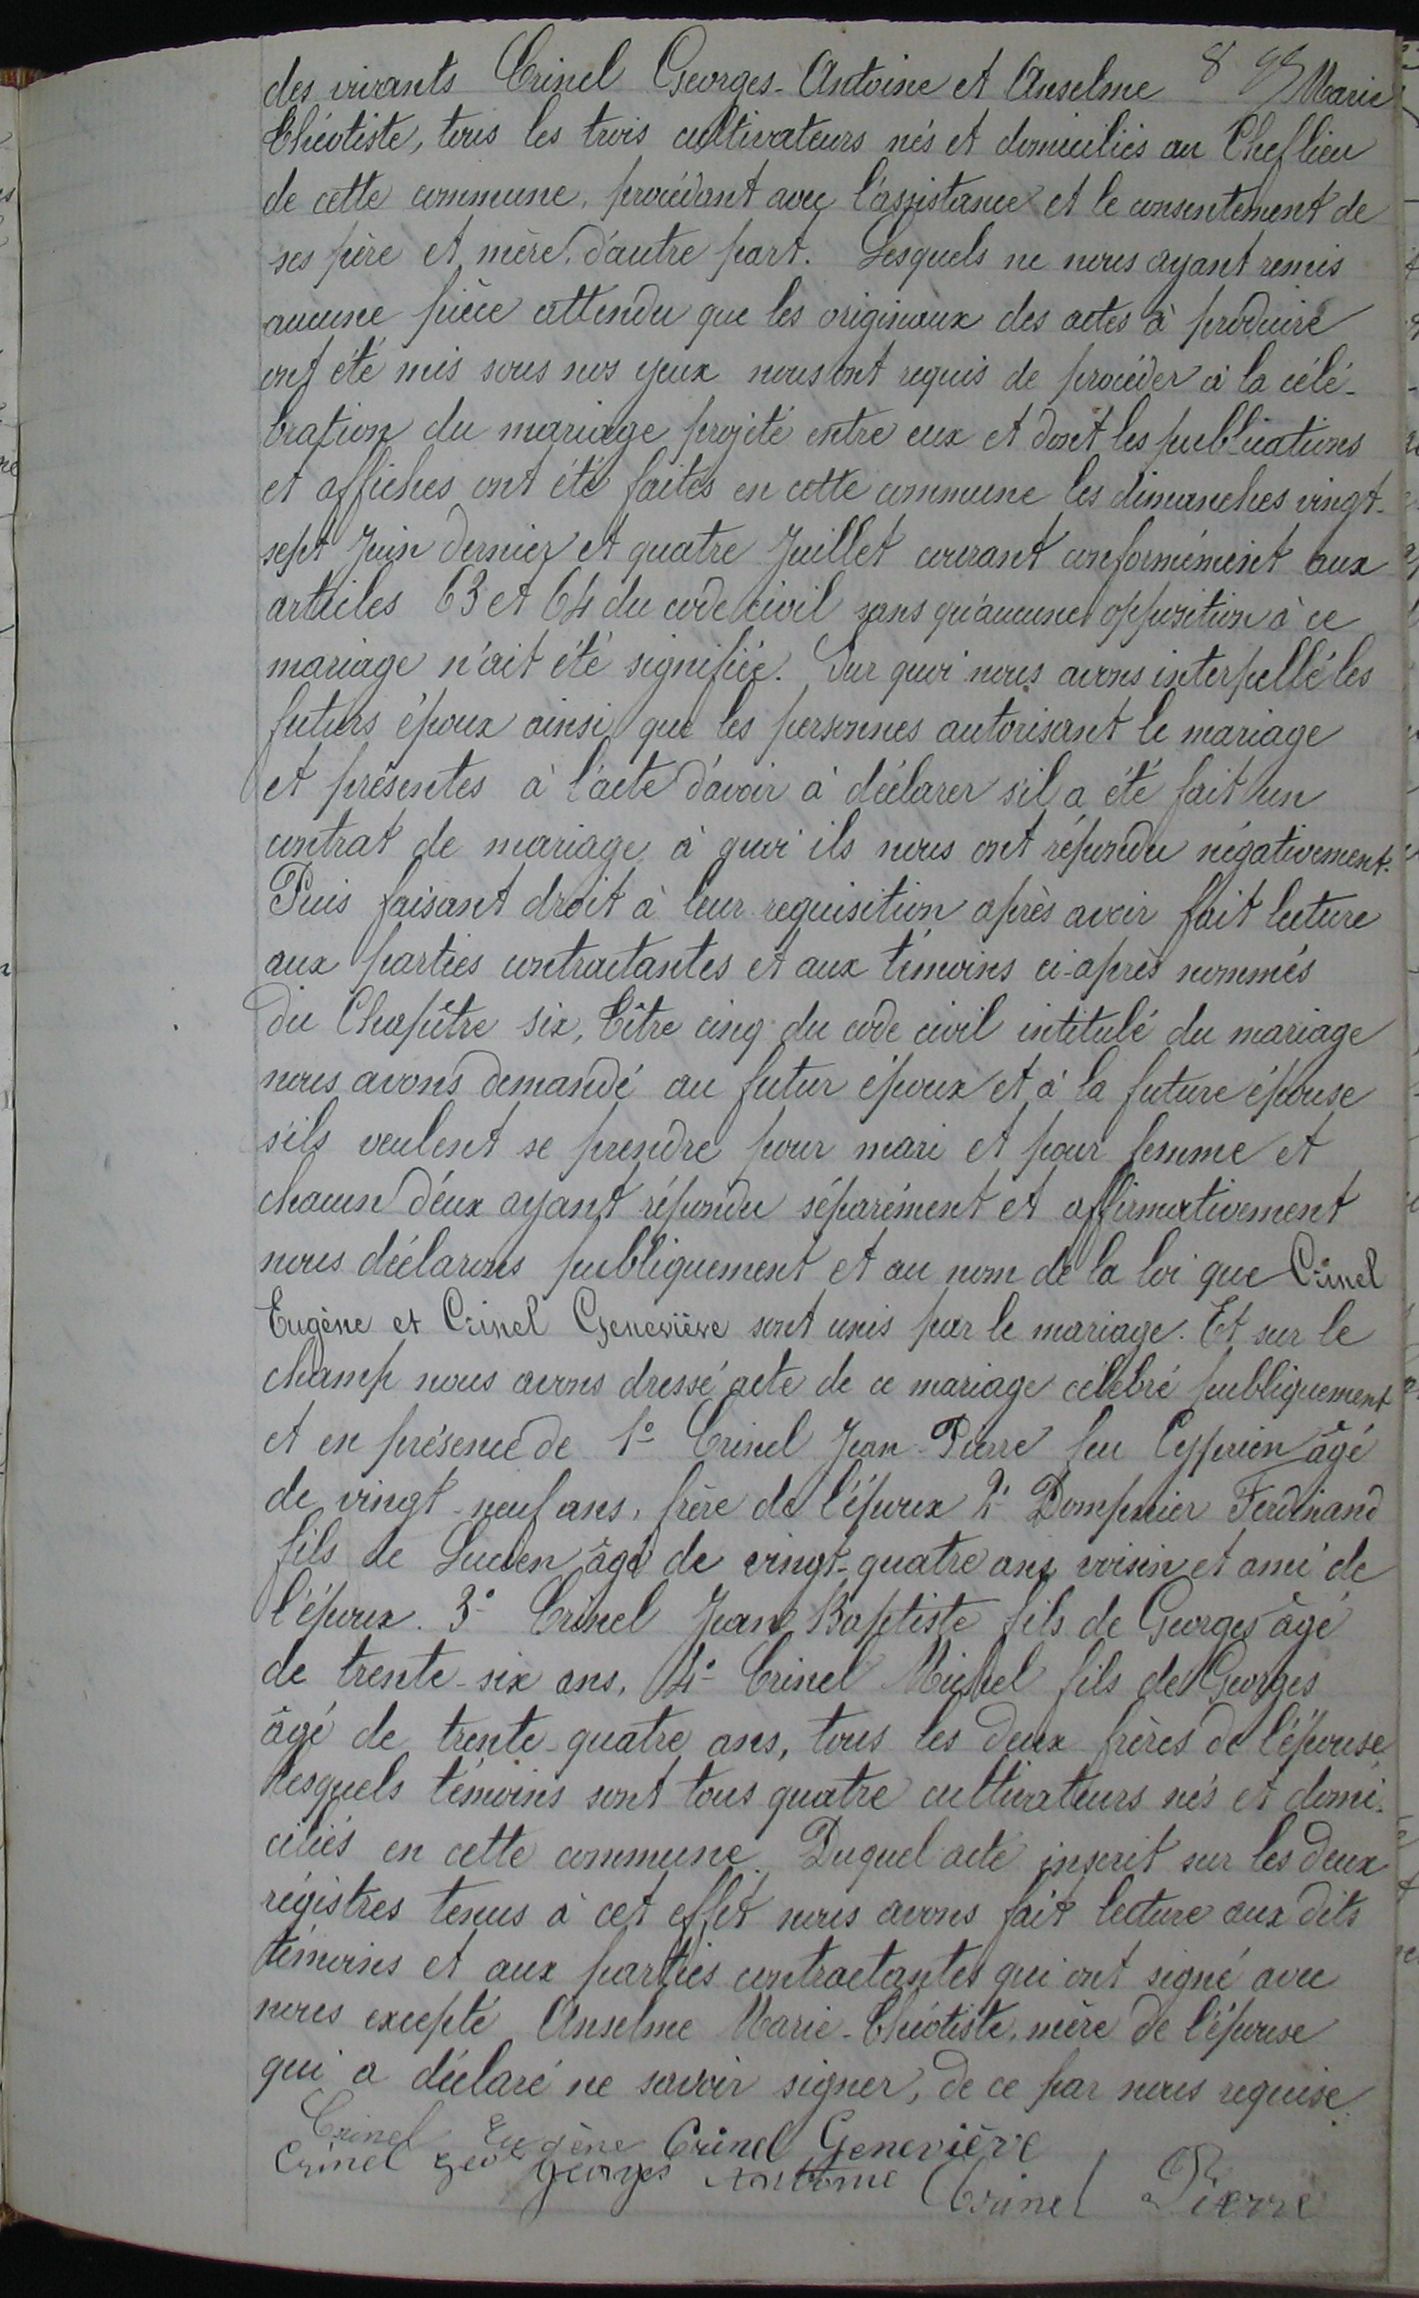 des vivants Crinel Georges-Antoine et Anselme 8 Marie
Théotiste, tous les trois cultivateurs nés et domiciliés au Chef lieu
de cette commune, procédant avec l'assistance et le consentement de
ses père et mère, d'autre part. Lesquels ne nous ayant remis
aucune pièce attendu que les originaux des actes à produire
ont été mis sous nos yeux nous ont requis de procéder à la célé-
bration du mariage projeté entre eux et dont les publications
et affiches ont été faites en cette commune les dimanches vingt-
sept Juin dernier et quatre Juillet courant conformément aux
articles 63 et 64 du code civil sans qu'aucune opposition à ce
mariage n'ait été signifiée. Sur quoi nous avons interpellé les
futurs époux ainsi que les personnes autorisant le mariage
et présentes à l'acte d'avoir à déclarer s'il a été fait un
contrat de mariage à quoi ils nous ont répondu négativement.
Puis faisant droit à leur requisition après avoir fait lecture
aux parties contractantes et aux témoins ci-après nommés
du Chapître six, Titre cinq du code civil intitulé du mariage
nous avons demandé au futur époux et à la future épouse
s'ils veulent se prendre pour mari et pour femme et
chacun d'eux ayant répondu séparément et affirmativement
nous déclarons publiquement et au nom de la loi que Crinel
Eugène et Crinel Geneviève sont unis par le mariage. Et sur le
champ nous avons dressé acte de ce mariage célébré publiquement
et en présence de 1° Crinel Jean-Pierre feu Cyprien âgé
de vingt-neuf ans, frère de l'époux 2° Dompnier Ferdinand
fils de Lucien âgé de vingt-quatre ans voisin et ami de
l'époux. 3° Crinel Jean Baptiste fils de Georges âgé
de trente-six ans, 4° Crinel Michel fils de Georges
âgé de trente-quatre ans, tous les deux frères de l'épouse
lesquels témoins sont tous quatre cultivateurs nés et domi-
ciliés en cette commune. Duquel acte inscrit sur les deux
régistres tenus à cet effet nous avons fait lecture aux dits
témoins et aux parties contractantes qui ont signé avec
nous excepté Anselme Marie-Théotiste, mère de l'épouse
qui a déclaré ne savoir signer, de ce par nous requise.
Crinel Eugène Crinel Geneviève
Crinel Geor Georges Antoine Crinel Pierre